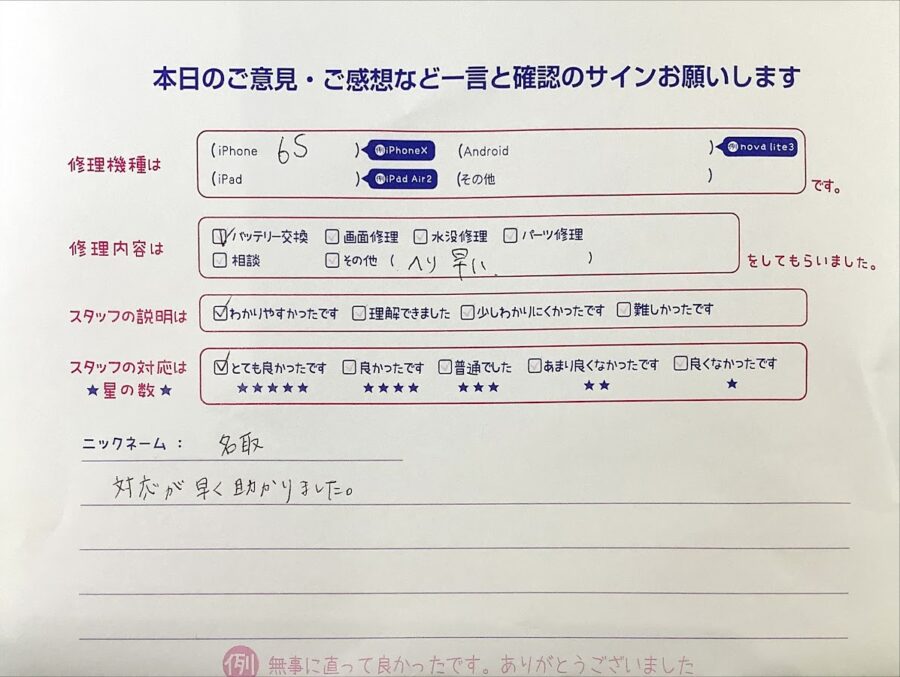 本日のご意見・ご感想など一言と確認のサインお願いします
修理機種は
(iPhone 6S ) 例iPhoneX (Android ) 例nova lite3
(iPad ) 例iPad Air2 (その他 ) です。
修理内容は
バッテリー交換 画面修理 水没修理 パーツ修理
相談 その他 ( ヘリ 早い ) をしてもらいました。
スタッフの説明は わかりやすかったです 理解できました 少しわかりにくかったです 難しかったです
スタッフの対応は とても良かったです 良かったです 普通でした あまり良くなかったです 良くなかったです
★星の数★ ★★★★★ ★★★★ ★★★ ★★ ★
ニックネーム： 名取
対応が早く助かりました。
例 無事に直って良かったです。ありがとうございました